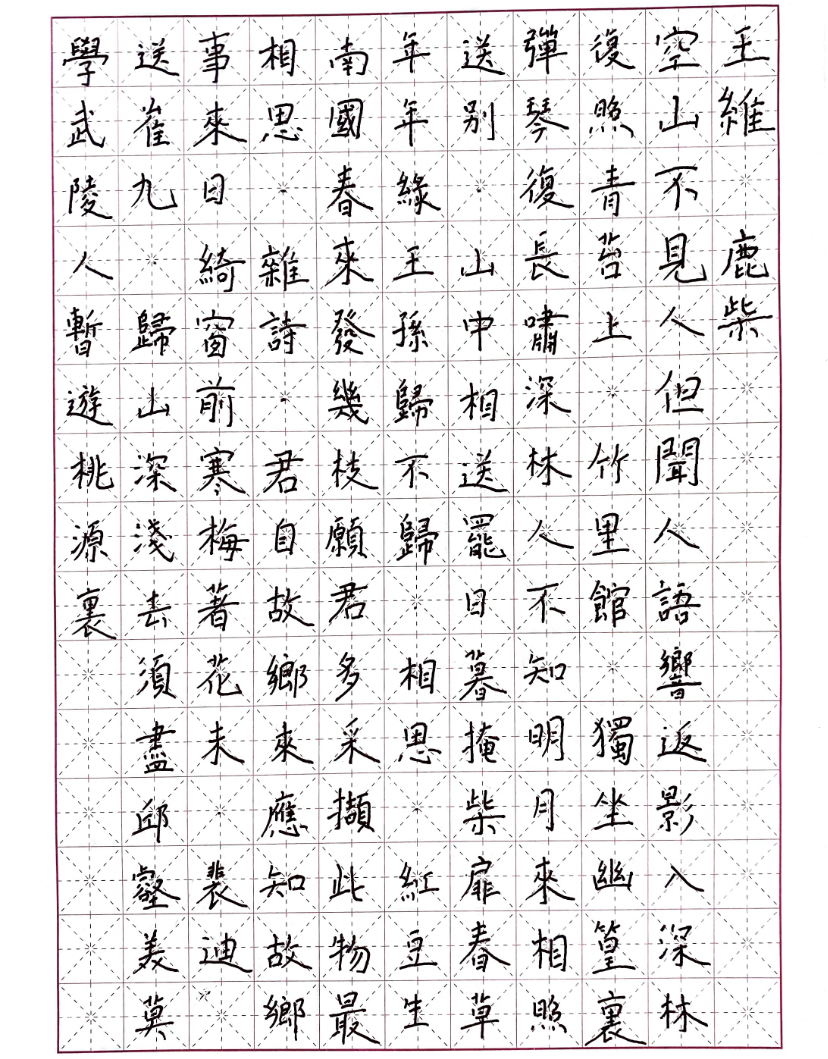 王維 鹿柴
空山不見人但聞人語響返影入深林
復照青苔上 竹里館 獨坐幽篁裏
彈琴復長嘯深林人不知明月來相照
送别 山中相送罷日暮掩柴扉春草
年年緣王孫歸不歸 相思 紅豆生
南國春來發幾枝願君多采擷此物最
相思 雜詩 君自故鄉來應知故鄉
事來日綺窗前寒梅著花未 裴迪
送崔九 歸山深淺去須盡邱壑美莫
學武陵人暫遊桃源裏